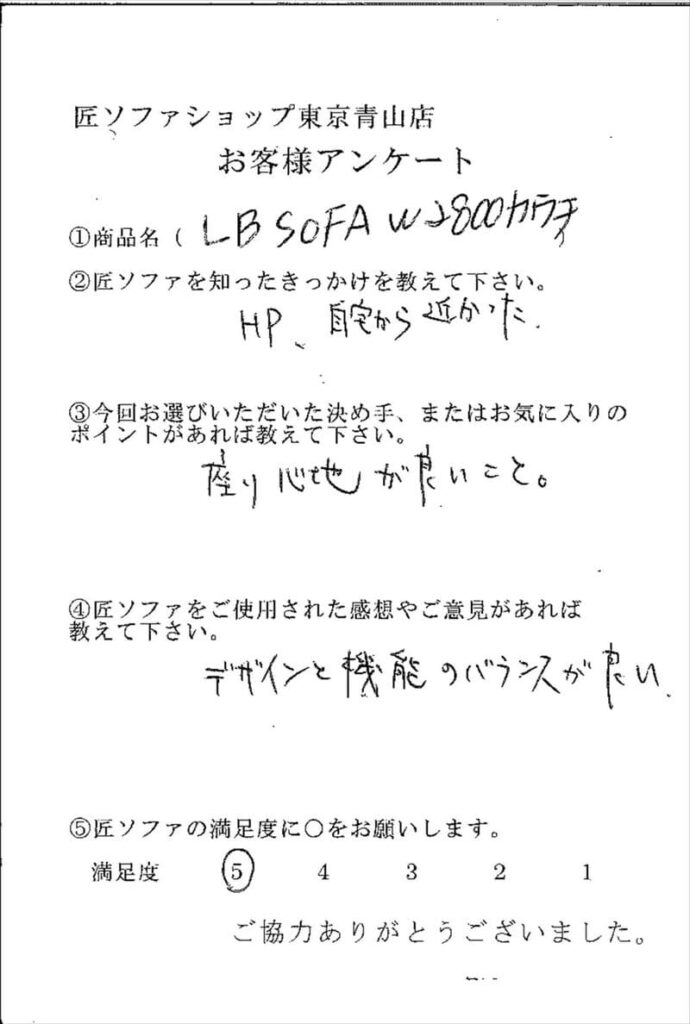 匠ソファショップ東京青山店
お客様アンケート
①商品名( LB SOFA W2800カウチ
②匠ソファを知ったきっかけを教えて下さい。
HP、自宅から近かった.
③今回お選びいただいた決め手、またはお気に入りの
ポイントがあれば教えて下さい。
座り心地が良いこと。
④匠ソファをご使用された感想やご意見があれば
教えて下さい。
デザインと機能のバランスが良い.
⑤匠ソファの満足度に○をお願いします。
満足度 5 4 3 2 1
ご協力ありがとうございました。